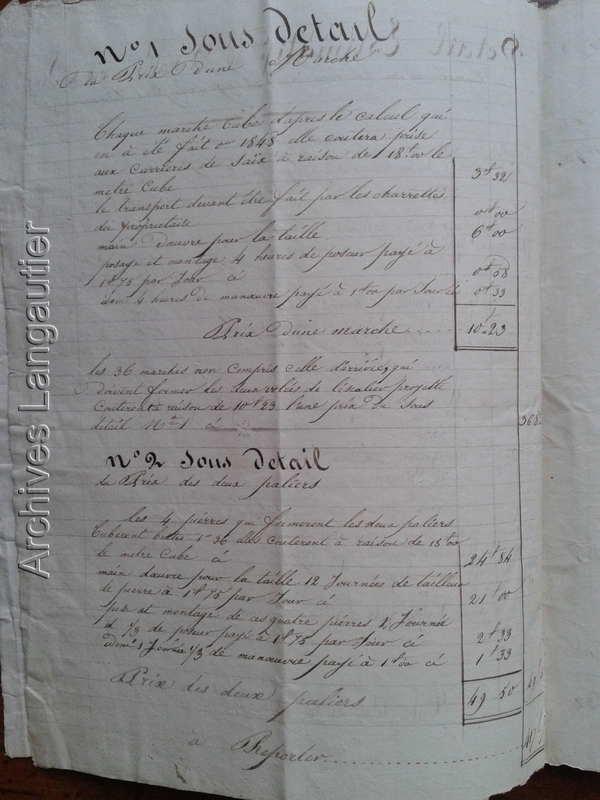 N° 1 Sous Detail
du Prix d'une Marche
Chaque marche Cube d'apres le calcul qui
en à été fait en 1848 elle coutera prise
aux Carrieres de Saïx à raison de 18f00 le
metre Cube 3f32
le transport devant être fait par les charrettes
du propriétaire 0f00
main d'œuvre pour la taille 6f00
posage et montage 4 heures de poseur payé à
1f75 par Jour ci 0f58
idem 4 heures de manœuvre payé à 1f00 par Jour ci 0f33
Prix d'une marche 10f23
les 36 marches non Compris celle d'arrivée, qui
doivent former les deux volées de l'escalier projetté
Couteront à raison de 10f23 l'une prix du Sous
detail N° 1 ci 368
N° 2 Sous Detail
du Prix des deux paliers
les 4 pierres qui formeront les deux paliers
Cuberont 1m36 elles Couteront à raison de 18f00
le metre Cube ci 24f84
main d'œuvre pour la taille 12 Journées de tailleur
de pierre à 1f75 par Jour ci 21f00
pose et montage de ces quatre pierres 1 Journée
et 1/3 de poseur payé à 1f75 par Jour ci 2f33
idem 1 Journée 1/3 de manœuvre payé à 1f00 ci 1f33
Prix des deux paliers 49 50
à Reporter
Archives Langautier